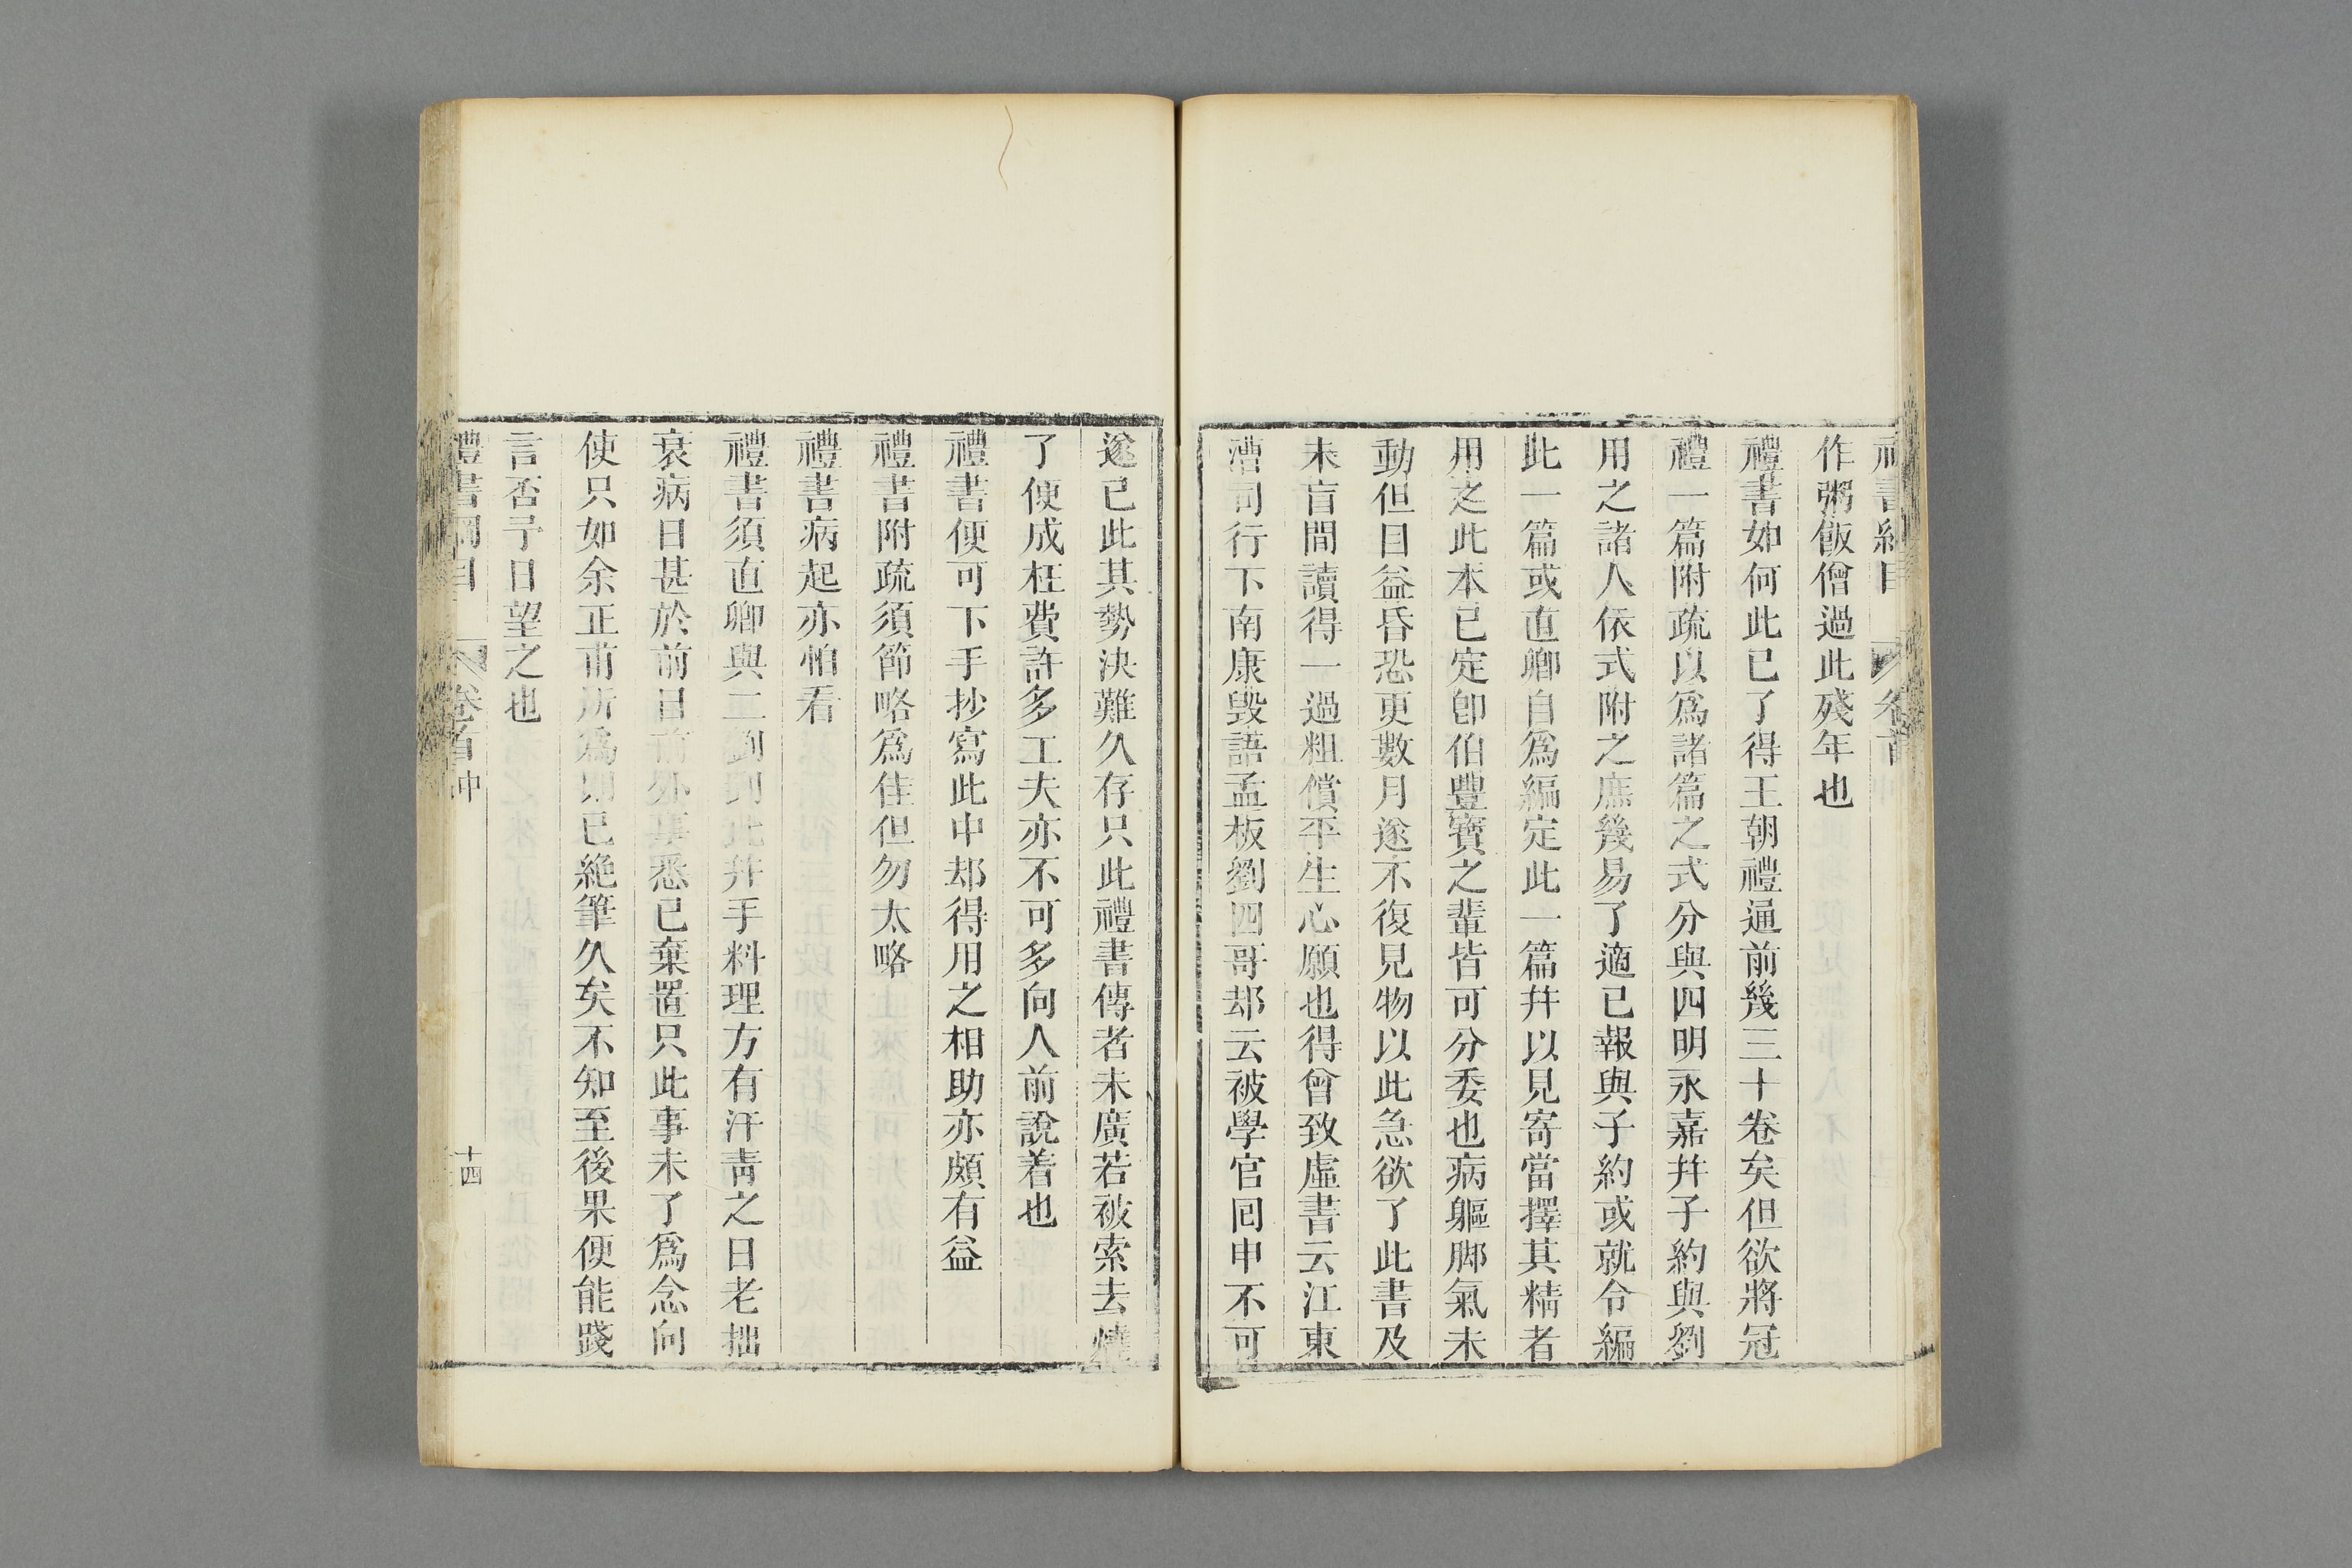 作粥飯僧過此殘年也
禮書如何此已了得王朝禮通前幾三十卷矣但欲將冠
禮一篇附疏以爲諸篇之式分與四明永嘉幷子約與劉
用之諸人依式附之庶幾易了適已報與子約或就令編
此一篇或直卿自爲編定此一篇幷以見寄當擇其精者
用之此本已定卽伯豐寶之輩皆可分委也病軀脚氣未
動但目益昏恐更數月遂不復見物以此急欲了此書及
未盲間讀得一過粗償平生心願也得曾致虛書云江東
漕司行下南康毀語孟板劉四哥却云被學官回申不可
遂已此其勢決難久存只此禮書傳者未廣若被索去燒
了便成枉費許多工夫亦不可多向人前說着也
禮書便可下手抄寫此中却得用之相助亦頗有益
禮書附疏須節略爲佳但勿太略
禮書病起亦怕看
禮書須直卿與二劉到此幷手料理方有汗靑之日老拙
衰病日甚於前目前外事悉已棄置只此事未了爲念向
使只如余正甫所爲卽已絶筆久矣不知至後果便能踐
言否予日望之也
禮書綱目 卷首中 十四